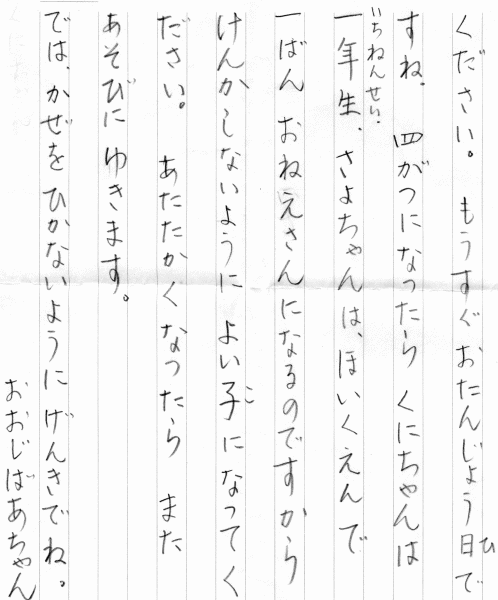 ください。もうすぐおたんじょう日で
すね。四がつになったらくにちゃんは
一年生、さよちゃんは、ほいくえんで
一ばんおねえさんになるのですから
けんかしないようによい子になってく
ださい。あたたかくなったらまた
あそびにゆきます。
では、かぜをひかないようにげんきでね。
おおじばあちゃん
ひ
いちねんせい.
こ